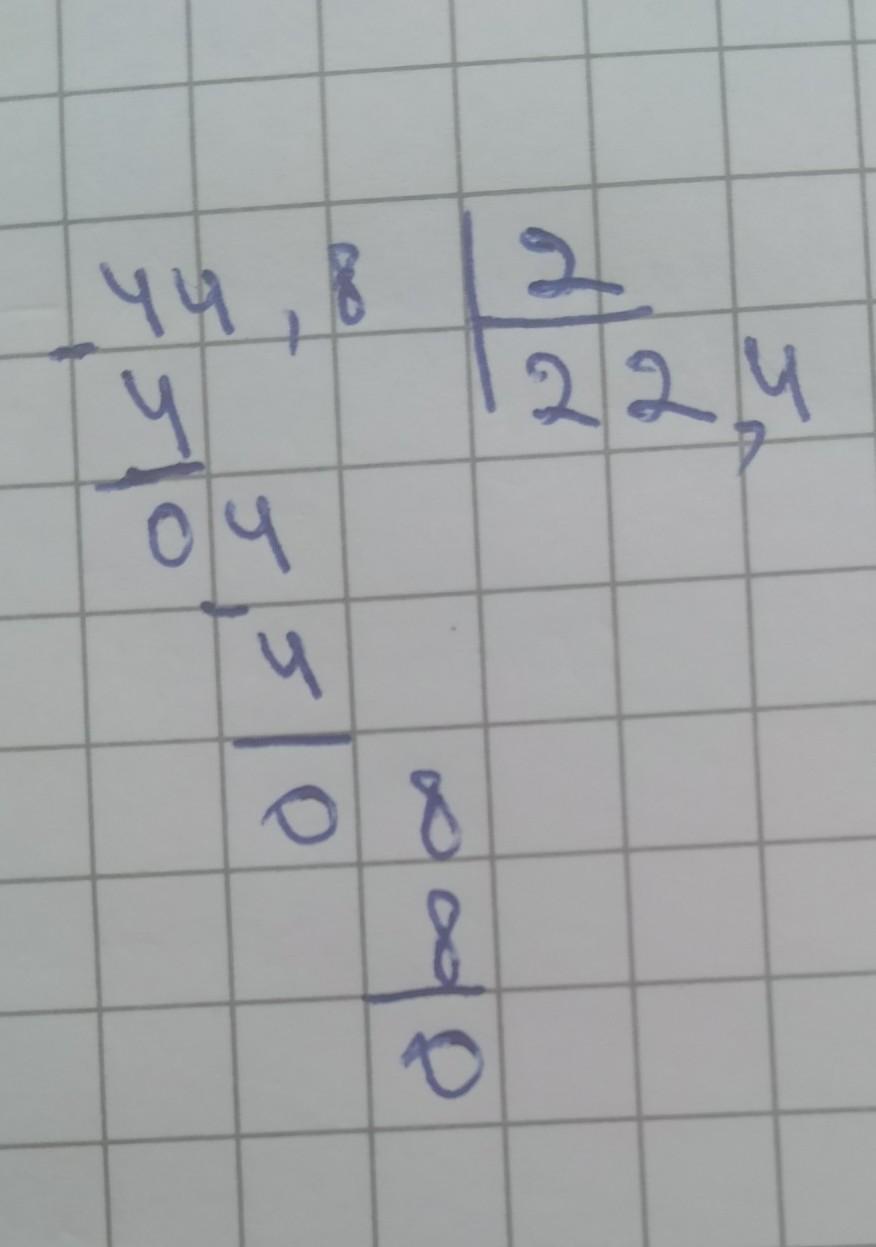 44,8 2
- 4 22,4
04
- 4
08
8
0